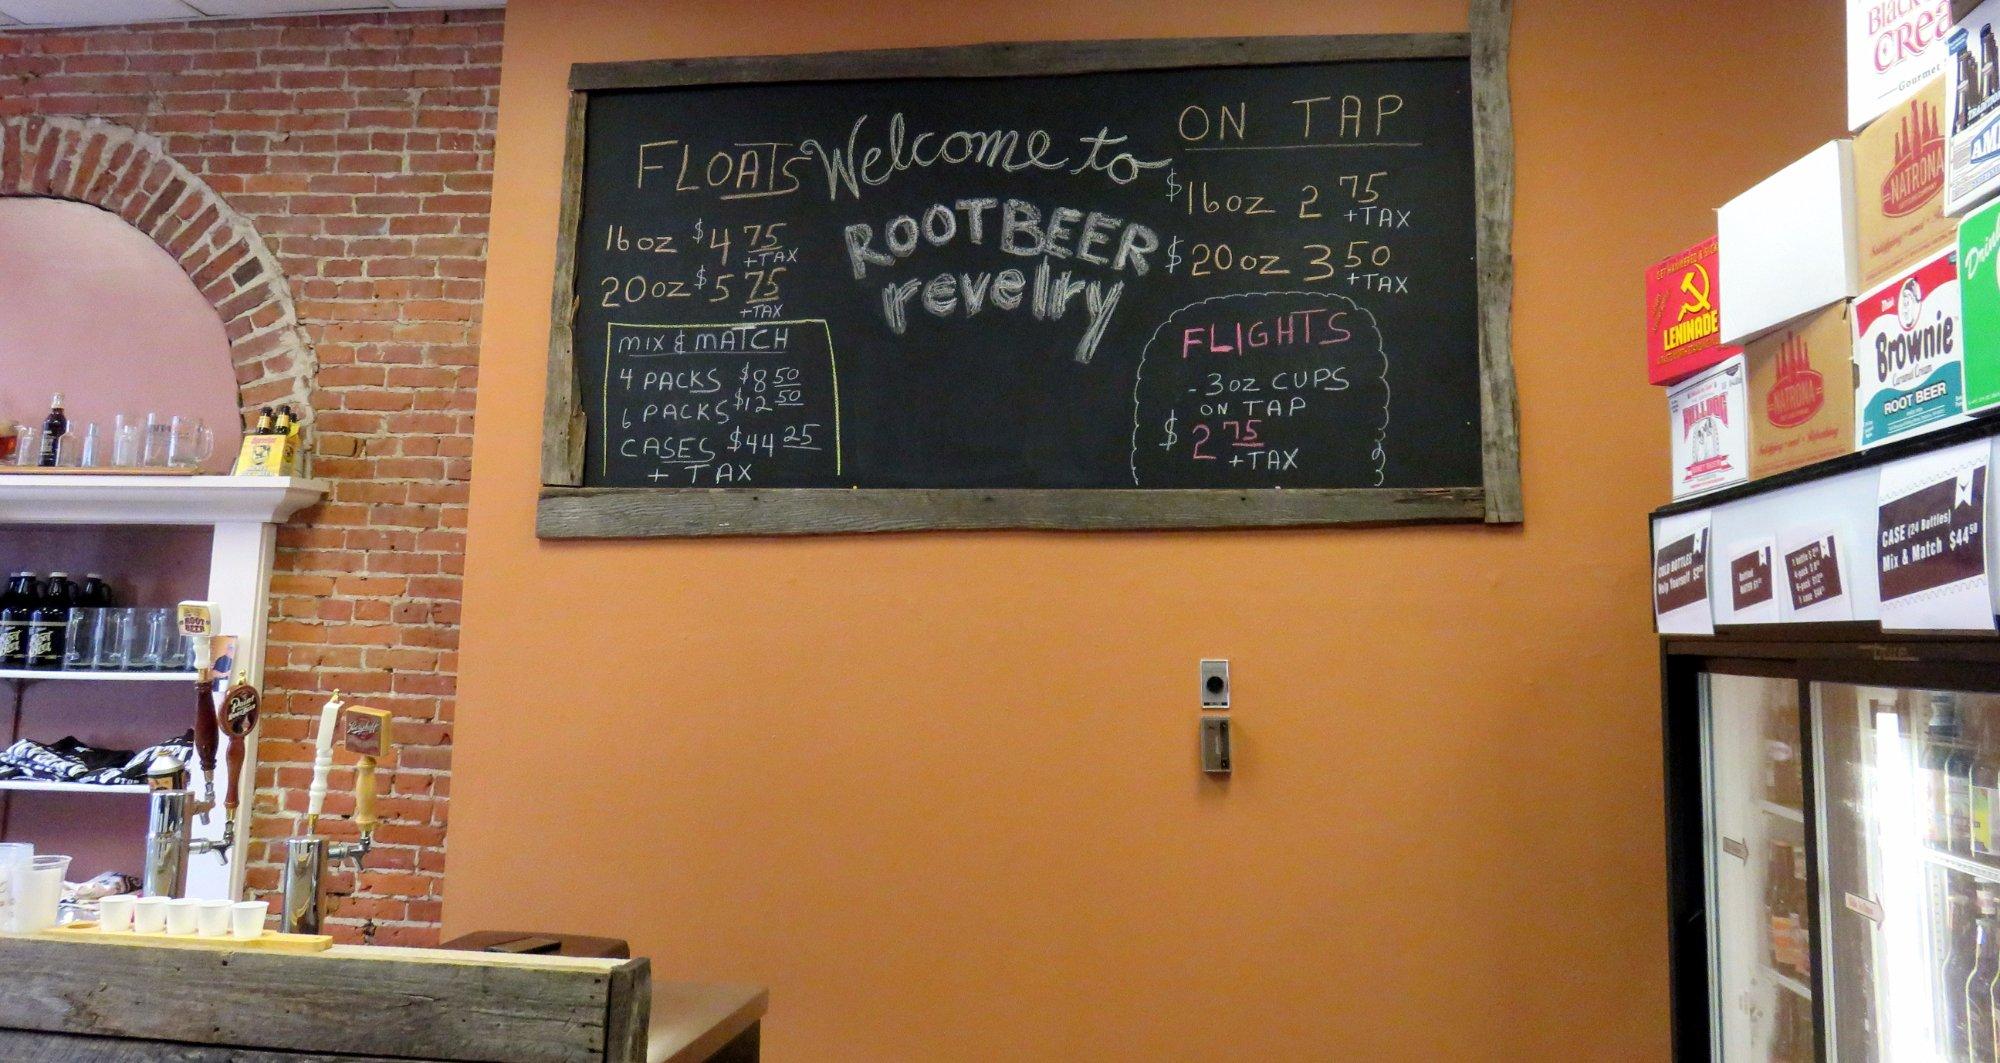 FLOATS
16oz $4 75
+TAX
20oz $5 75
+TAX
MIX & MATCH
4 PACKS $8 50
6 PACKS $12 50
CASES $44 25
+ TAX
Welcome to
ROOTBEER
revelry
ON TAP
$16oz 2 75
+TAX
$20oz 3 50
+TAX
FLIGHTS
- 3oz CUPS
ON TAP
$2 75
+TAX
Gourmet
NATRONA
GET HAMMERED & SICKLED
LENINADE
NATRONA
BULLDOG
Brownie
Caramel Cream
ROOT BEER
COLD BOTTLES
Help Yourself
Bottled
WATER
CASE (24 Bottles)
Mix & Match $44.50
true
ROOT
BEER
Root
Beer